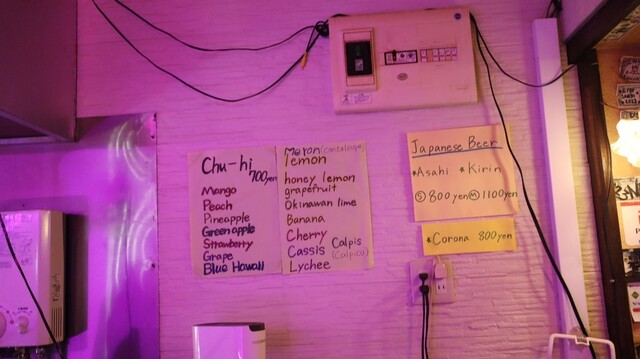 Chu-hi
700yen
Mango
Peach
Pineapple
Green apple
Strawberry
Grape
Blue Hawaii
Meron (cantaloupe)
lemon
honey lemon
grapefruit
Okinawan lime
Banana
Cherry
Cassis
Calpis
(Calpico)
Lychee
Japanese Beer
*Asahi *Kirin
Ⓢ 800yen Ⓜ 1100yen
*Corona 800yen